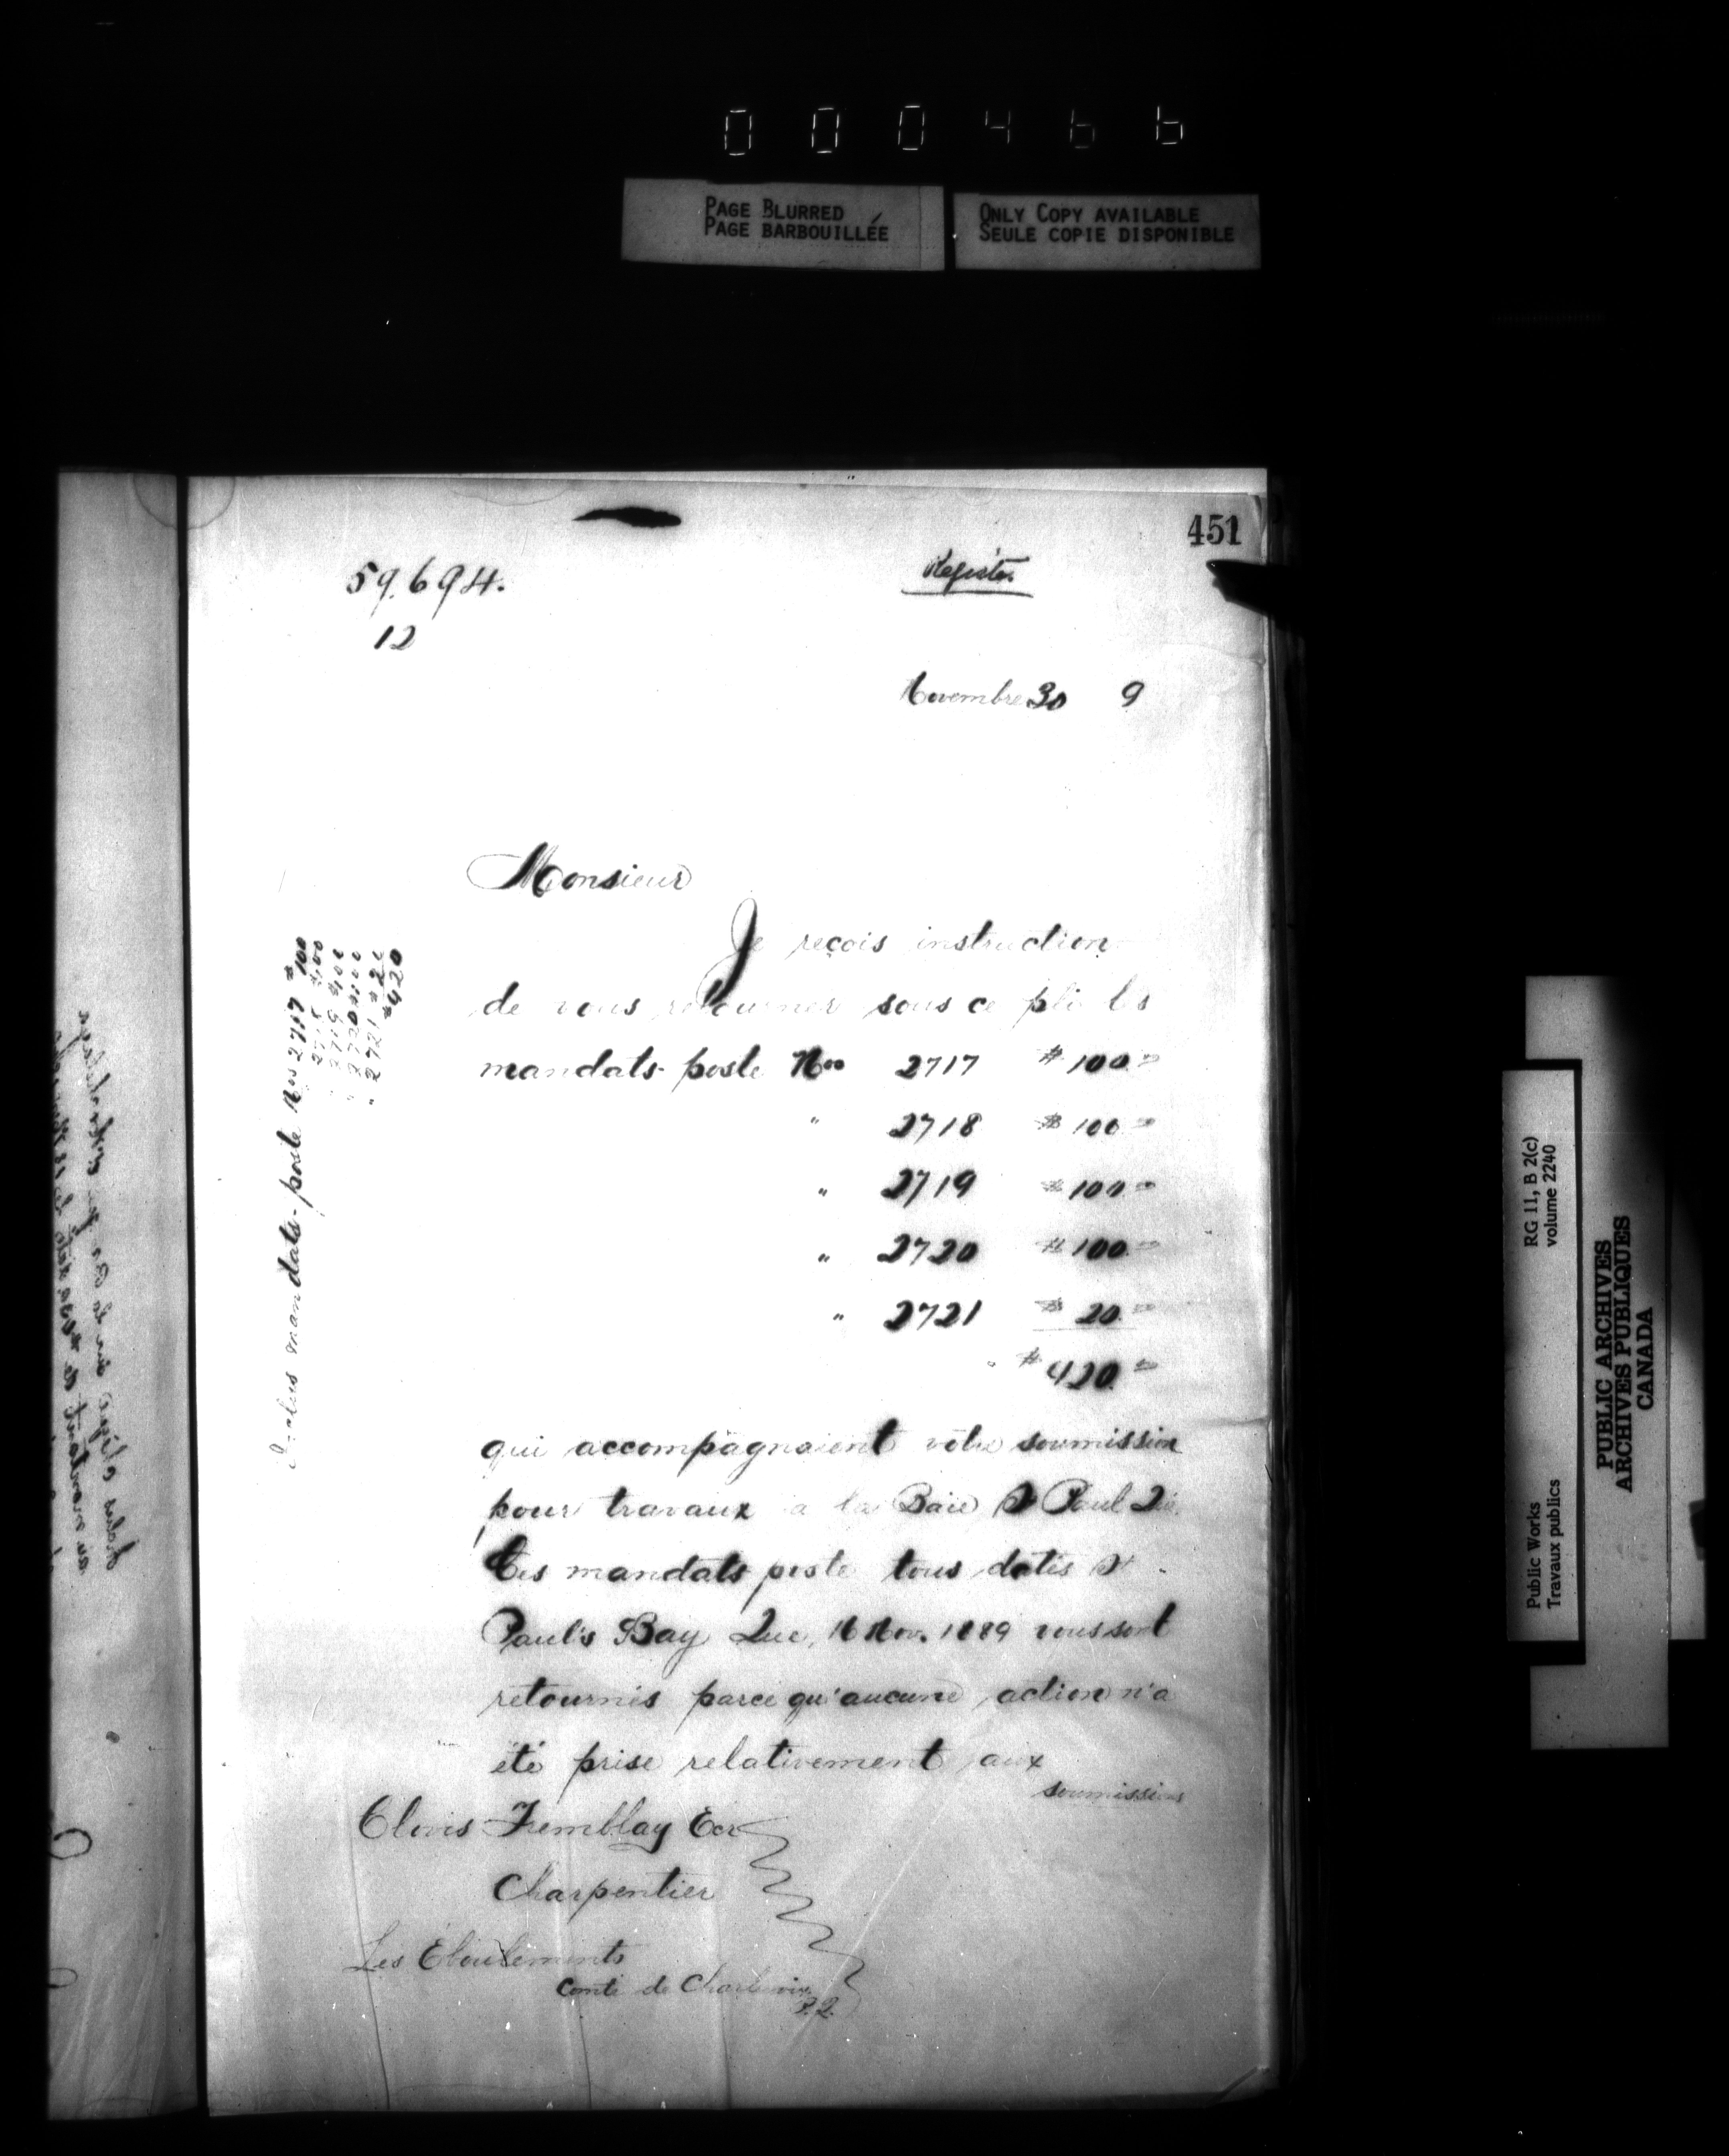 000466
PAGE BLURRED
PAGE BARBOUILLÉE
ONLY COPY AVAILABLE
SEULE COPIE DISPONIBLE
451
59,694.
12
Register
Novembre 30 9
Monsieur
Je reçois instruction
de vous retourner sous ce pli les
mandats-poste Nos 2717 $100.00
" 2718 $100.00
" 2719 $100.00
" 2720 $100.00
" 2721 $20.00
$420.00
qui accompagnaient votre soumission
pour travaux à la Baie St Paul Que.
Ces mandats poste tous datés St
Paul's Bay Que, 16 Nov. 1889 vous sont
retournés parce qu'aucune action n'a
été prise relativement aux
soumissions
Clovis Tremblay Ecr
Charpentier
Les Éboulements
Comté de Charlevoix
P.Q.
Inclus mandats-poste Nos 2717 $100
" 2718 $100
" 2719 $100
" 2720 $100
" 2721 $20
$420
RG 11, B 2(c)
volume 2240
Public Works
Travaux publics
PUBLIC ARCHIVES
ARCHIVES PUBLIQUES
CANADA